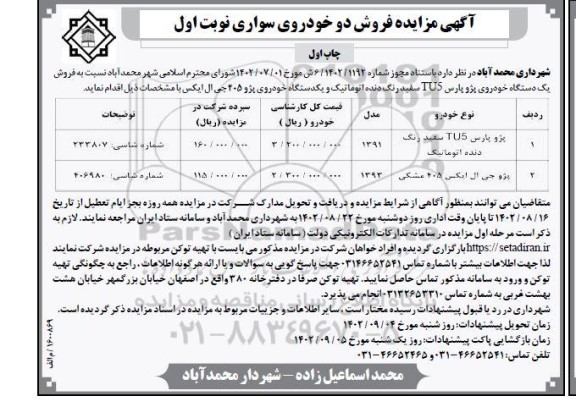 آگهی مزایده فروش دو خودروی سواری نوبت اول
چاپ اول
شهرداری محمد آباد در نظر دارد باستناد مجوز شماره ۱۱۹۲/ ۶/۱۴۰۲ش مورخ ۱۴۰۲/۰۷/۰۱ شورای محترم اسلامی شهر محمدآباد نسبت به فروش
یک دستگاه خودروی پژو پارس TU5 سفید رنگ دنده اتوماتیک و یکدستگاه خودروی پژو ۴۰۵ جی ال ایکس با مشخصات ذیل اقدام نماید.
ردیف نوع خودرو مدل قیمت کل کارشناسی خودرو ( ریال ) سپرده شرکت در مزایده (ریال) توضیحات
۱ پژو پارس TU5 سفید رنگ دنده اتوماتیک ۱۳۹۱ ۳/۲۰۰/۰۰۰/۰۰۰ ۱۶۰/۰۰۰/۰۰۰ شماره شاسی: ۲۳۳۸۰۷
۲ پژو جی ال ایکس ۴۰۵ مشکی ۱۳۹۳ ۲/۳۰۰/۰۰۰/۰۰۰ ۱۱۵/۰۰۰/۰۰۰ شماره شاسی: ۴۰۶۹۸۰
متقاضیان می توانند بمنظور آگاهی از شرایط مزایده و دریافت و تحویل مدارک شرکت در مزایده همه روزه بجز ایام تعطیل از تاریخ
۱۴۰۲/۰۸/۱۶ تا پایان وقت اداری روز دوشنبه مورخ ۱۴۰۲/۰۸/۲۲ به شهرداری محمدآباد و سامانه ستاد ایران مراجعه نمایند. لازم به
ذکر است مرحله اول مزایده در سامانه تدارکات الکترونیکی دولت (سامانه ستاد ایران)
https://setadiran.ir بارگزاری گردیده و افراد خواهان شرکت در مزایده مذکور می بایست با تهیه توکن مربوطه در مزایده شرکت نمایند
لذا جهت اطلاعات بیشتر با شماره تماس ۰۳۱۴۶۶۵۲۵۴۱ جهت پاسخ گویی به سوالات و یا ارائه هرگونه اطلاعات، راجع به چگونگی تهیه
توکن و ورود به سامانه مذکور تماس حاصل نمایید. تهیه توکن صرفا در دفترخانه ۳۸۰ واقع در اصفهان خیابان بزرگمهر خیابان هشت
بهشت غربی به شماره تماس ۰۳۱۳۲۶۵۳۳۱۰ انجام می پذیرد.
شهرداری در رد یا قبول پیشنهادات رسیده مختار است. سایر اطلاعات و جزییات مربوط به مزایده در اسناد مزایده ذکر گردیده است.
زمان تحویل پیشنهادات: روز شنبه مورخ ۱۴۰۲/۰۹/۰۴
زمان بازگشایی پاکت پیشنهادات: روز یک شنبه مورخ ۱۴۰۲/۰۹/۰۵
تلفن تماس: ۴۶۶۵۲۵۴۱-۰۳۱ و ۴۶۶۵۲۴۶۵-۰۳۱
محمد اسماعیل زاده – شهردار محمدآباد
۱۶۰۰۸۶۹ / م الف
۰۲۱-۸۸۳۴۹۶۷۰-۸